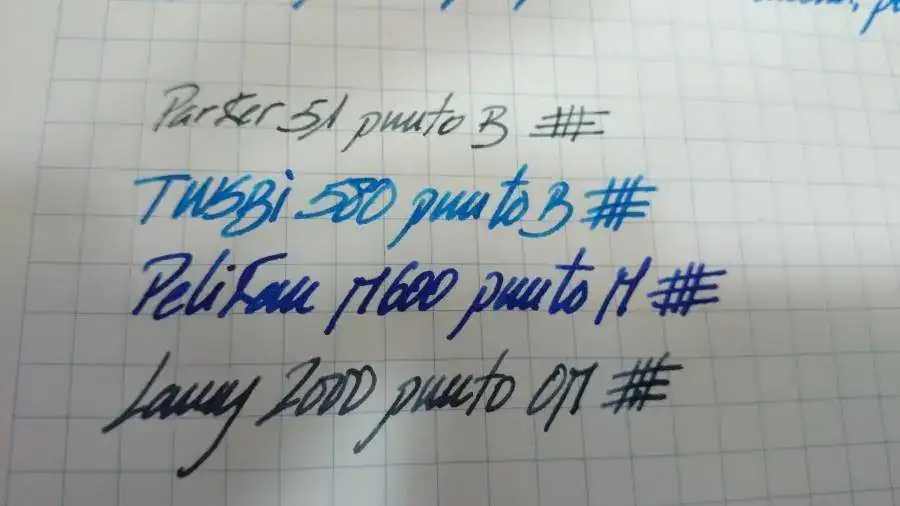 Parker 51 punto B
TWSBi 580 punto B
Pelikan M600 punto M
Lamy 2000 punto OM